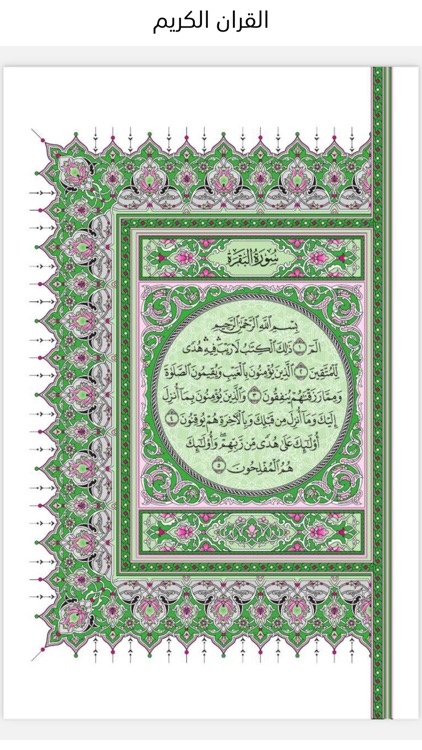 القران الكريم
سُورَةُ البَقَرَةِ
بِسْمِ ٱللَّهِ ٱلرَّحْمَٰنِ ٱلرَّحِيمِ
الٓمٓ ١ ذَٰلِكَ ٱلْكِتَٰبُ لَا رَيْبَ ۛ فِيهِ ۛ هُدًى
لِّلْمُتَّقِينَ ٢ ٱلَّذِينَ يُؤْمِنُونَ بِٱلْغَيْبِ وَيُقِيمُونَ ٱلصَّلَوٰةَ
وَمِمَّا رَزَقْنَٰهُمْ يُنفِقُونَ ٣ وَٱلَّذِينَ يُؤْمِنُونَ بِمَآ أُنزِلَ
إِلَيْكَ وَمَآ أُنزِلَ مِن قَبْلِكَ وَبِٱلْءَاخِرَةِ هُمْ يُوقِنُونَ ٤
أُو۟لَٰٓئِكَ عَلَىٰ هُدًى مِّن رَّبِّهِمْ ۖ وَأُو۟لَٰٓئِكَ
هُمُ ٱلْمُفْلِحُونَ ٥